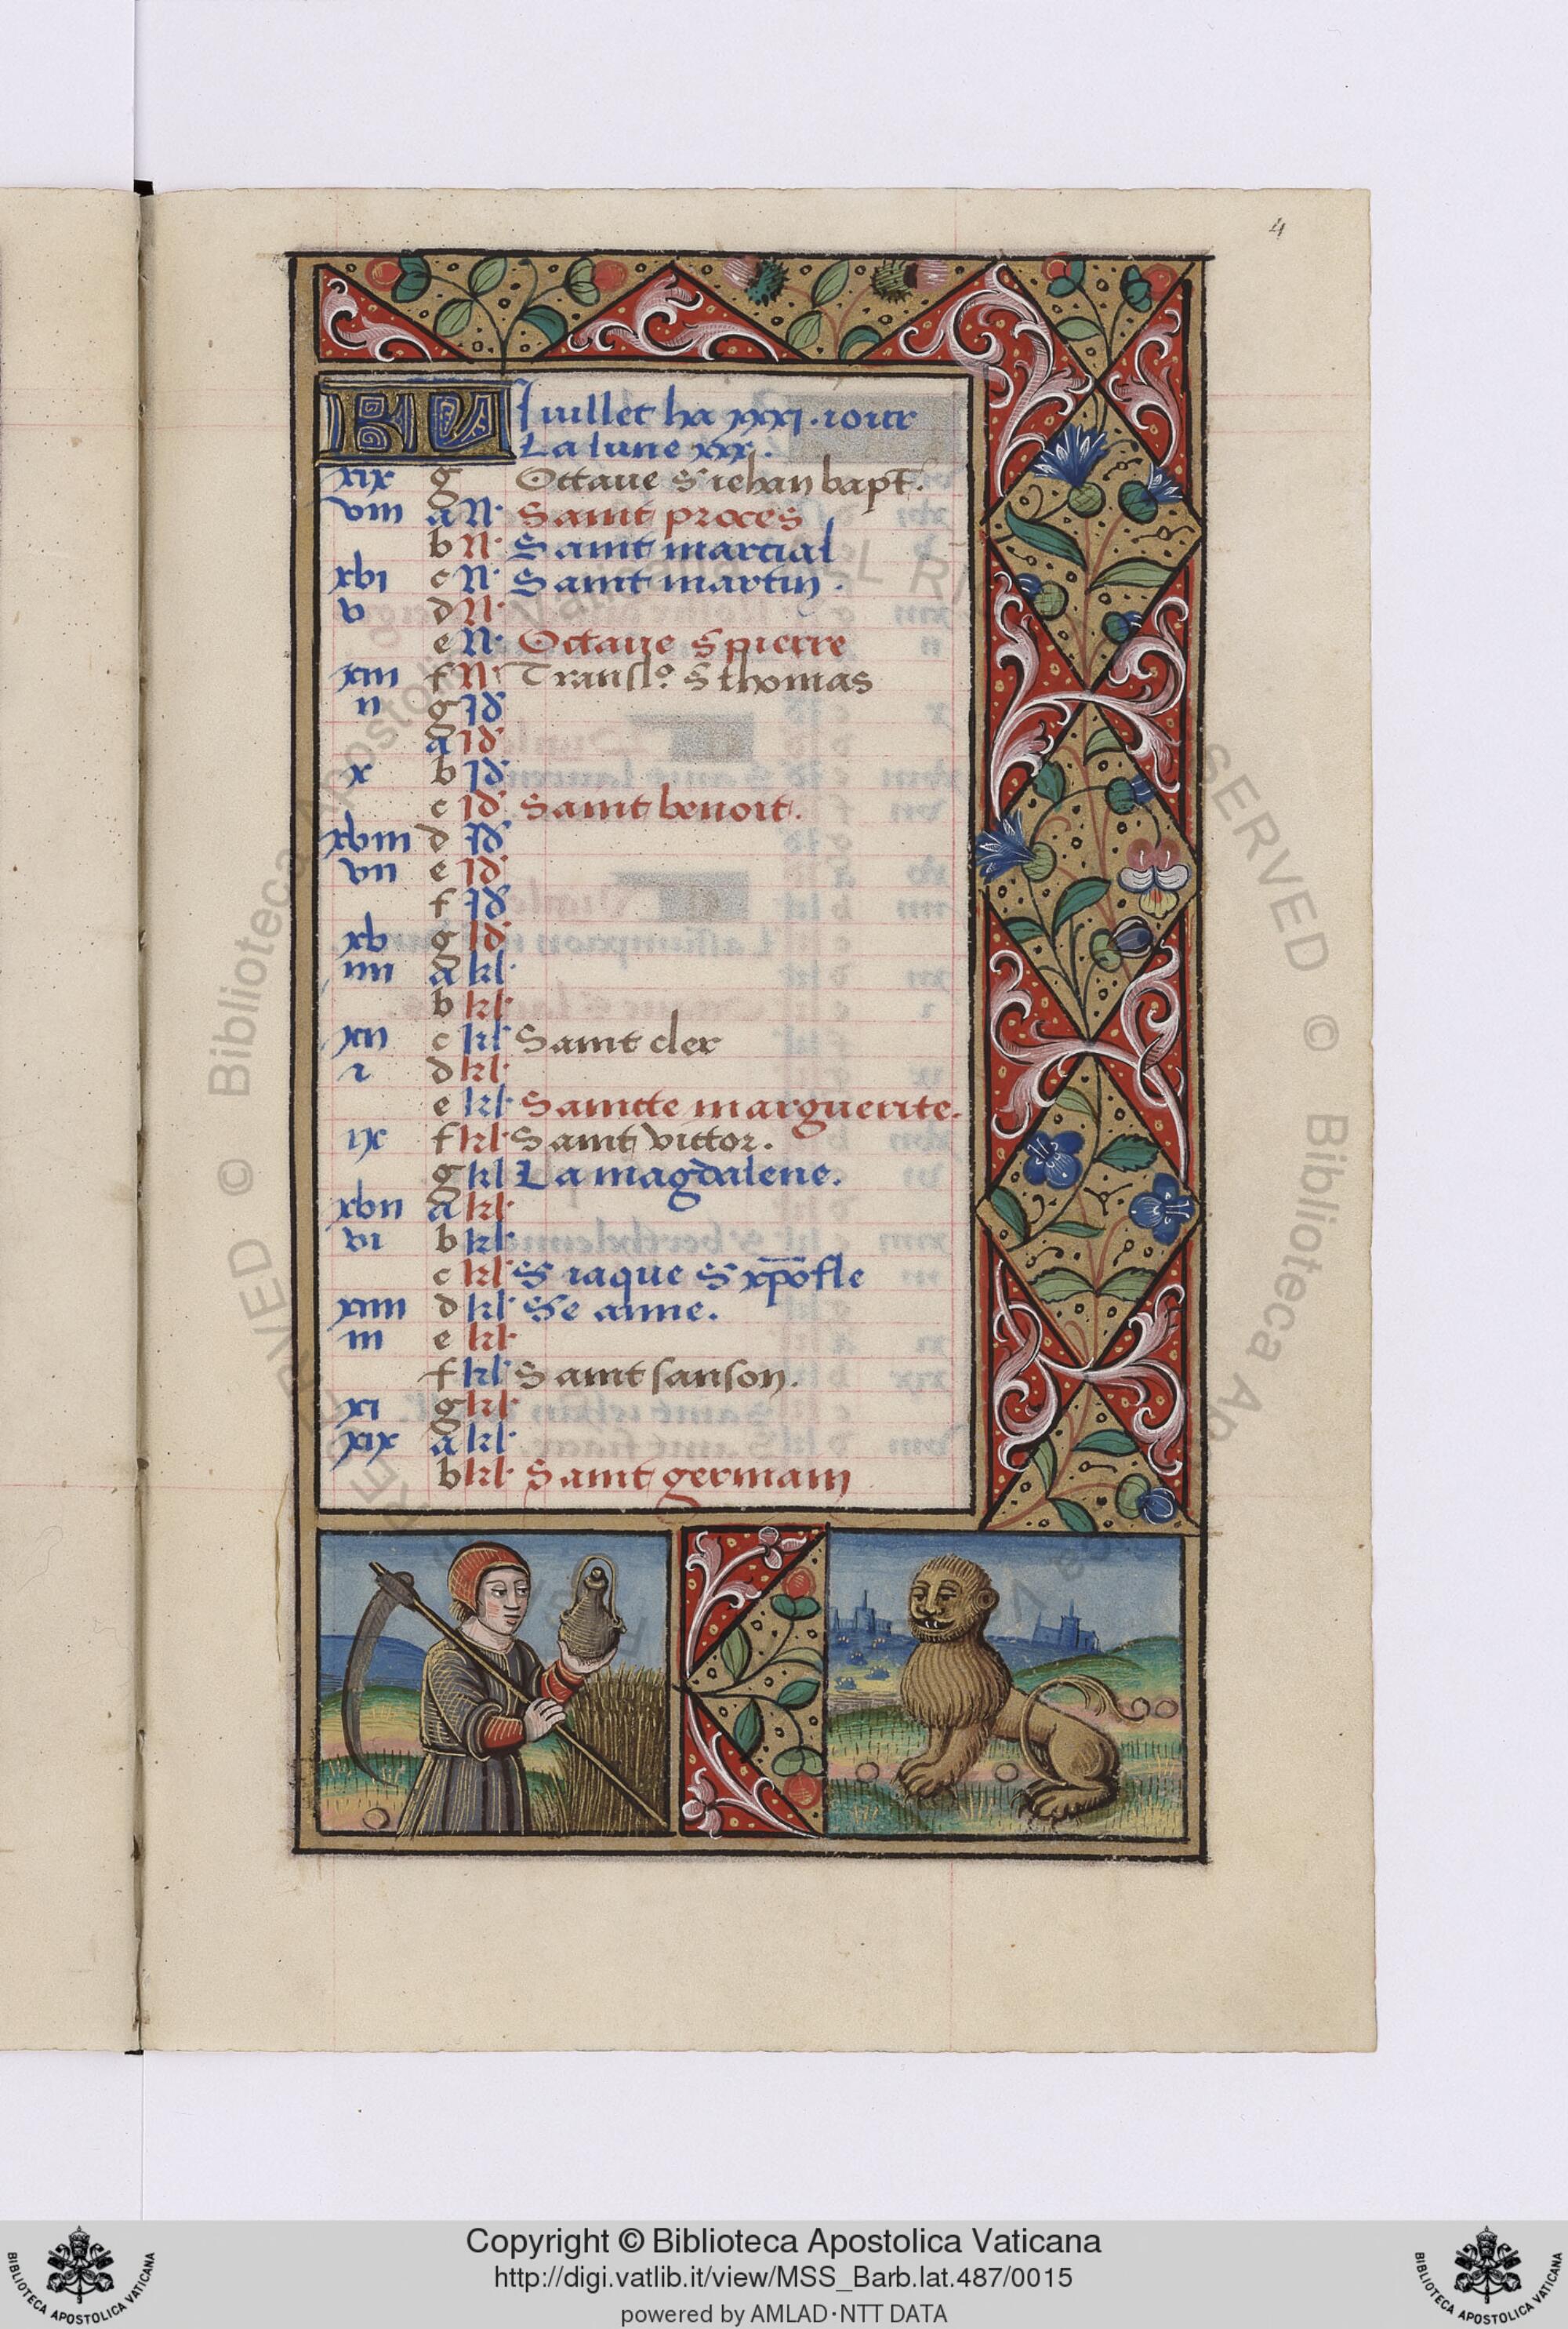 4
KL Iuillet ha xxxi. iours
La lune xxx.
xix g Octaue S iehan bapt.
viii a N. Saint proces
b N. Saint martial
xvi c N. Saint martin.
v d N.
e N. Octaue S pierre
xiii f N. Transl° S thomas
ii g Id
a Id
x b Id
c Id Saint benoit.
xviii d Id
vii e Id
f Id
xv g Id
iiii a kl.
b kl.
xii c kl. Saint cler
i d kl.
e kl. Saincte marguerite.
ix f kl. Saint victor.
g kl La magdalene.
xvii a kl.
vi b kl.
c kl S iaque S xpofle
xiiii d kl. Se anne.
iii e kl.
f kl Saint sanson.
xi g kl.
xix a kl.
b kl. Saint germain
Copyright © Biblioteca Apostolica Vaticana
http://digi.vatlib.it/view/MSS_Barb.lat.487/0015
powered by AMLAD·NTT DATA
BIBLIOTECA APOSTOLICA VATICANA
BIBLIOTECA APOSTOLICA VATICANA